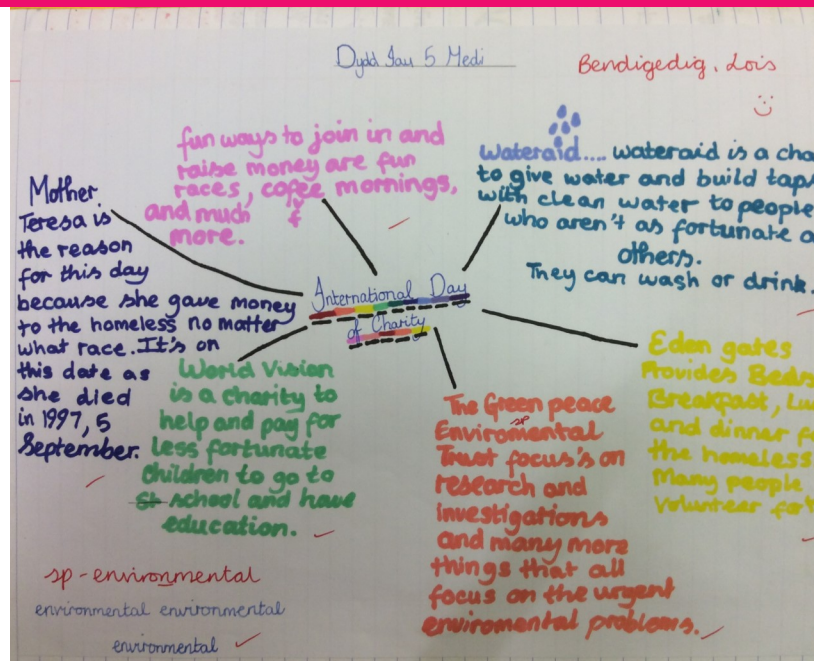 Dydd Iau 5 Medi
Bendigedig, Lois
fun ways to join in and
raise money are fun
races, cofee mornings,
f
and much
more.
Wateraid.... wateraid is a cha
to give water and build taps
with clean water to people
who aren't as fortunate a
others.
They can wash or drink.
Mother
Teresa is
the reason
for this day
because she gave money
to the homeless no matter
what race. It's on
this date as
she died
in 1997, 5
September.
International Day
of Charity
World Vision
is a charity to
help and pay for
less fortunate
children to go to
St school and have
education.
The Green peace
sp
Enviromental
Trust focus's on
research and
investigations
and many more
things that all
focus on the urgent
enviromental problems.
Eden gates
Provides Beds
Breakfast, Lu
and dinner fo
the homeless
Many people
Volunteer for
sp - environmental
environmental environmental
environmental